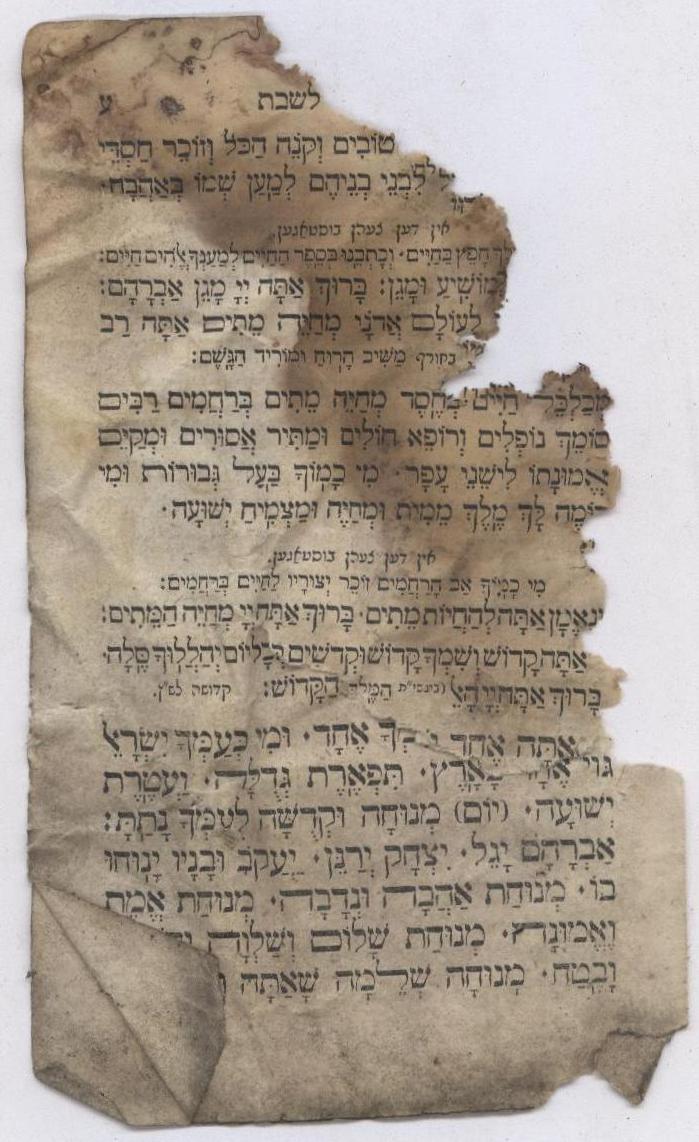 לשבת ע
טוֹבִים וְקֹנֵה הַכֹּל וְזוֹכֵר חַסְדֵּי
לִבְנֵי בְנֵיהֶם לְמַעַן שְׁמוֹ בְּאַהֲבָה·
אין דען צעהן בוסטאגען.
חָפֵץ בַּחַיִּים· וְכָתְבֵנוּ בְּסֵפֶר הַחַיִּים לְמַעַנְךָ אֱלֹהִים חַיִּים:
וּמוֹשִׁיעַ וּמָגֵן: בָּרוּךְ אַתָּה יְיָ מָגֵן אַבְרָהָם:
לְעוֹלָם אֲדֹנָי מְחַיֵּה מֵתִים אַתָּה רַב
בחורף מַשִּׁיב הָרוּחַ וּמוֹרִיד הַגָּשֶׁם:
מְכַלְכֵּל חַיִּים בְּחֶסֶד מְחַיֵּה מֵתִים בְּרַחֲמִים רַבִּים
סוֹמֵךְ נוֹפְלִים וְרוֹפֵא חוֹלִים וּמַתִּיר אֲסוּרִים וּמְקַיֵּם
אֱמוּנָתוֹ לִישֵׁנֵי עָפָר· מִי כָמוֹךָ בַּעַל גְּבוּרוֹת וּמִי
דּוֹמֶה לָּךְ מֶלֶךְ מֵמִית וּמְחַיֶּה וּמַצְמִיחַ יְשׁוּעָה·
אין דען צעהן בוסטאגען.
מִי כָמוֹךָ אַב הָרַחֲמִים זוֹכֵר יְצוּרָיו לְחַיִּים בְּרַחֲמִים:
וְנֶאֱמָן אַתָּה לְהַחֲיוֹת מֵתִים· בָּרוּךְ אַתָּה יְיָ מְחַיֵּה הַמֵּתִים:
אַתָּה קָדוֹשׁ וְשִׁמְךָ קָדוֹשׁ וּקְדשִׁים בְּכָל יוֹם יְהַלְלוּךָ סֶּלָה·
בָּרוּךְ אַתָּה יְיָ הָאֵל (בעשי״ת הַמֶּלֶךְ הַקָּדוֹשׁ: קדושה לש״ץ.
אַתָּה אֶחָד וְשִׁמְךָ אֶחָד· וּמִי כְּעַמְּךָ יִשְׂרָאֵל
גּוֹי אֶחָד בָּאָרֶץ· תִּפְאֶרֶת גְּדֻלָּה· וַעֲטֶרֶת
יְשׁוּעָה· (יוֹם) מְנוּחָה וּקְדֻשָּׁה לְעַמְּךָ נָתָתָּ:
אַבְרָהָם יָגֵל· יִצְחָק יְרַנֵּן· יַעֲקֹב וּבָנָיו יָנוּחוּ
בוֹ· מְנוּחַת אַהֲבָה וּנְדָבָה· מְנוּחַת אֱמֶת
וֶאֱמוּנָה· מְנוּחַת שָׁלוֹם וְשַׁלְוָה
וָבֶטַח· מְנוּחָה שְׁלֵמָה שָׁאַתָּה